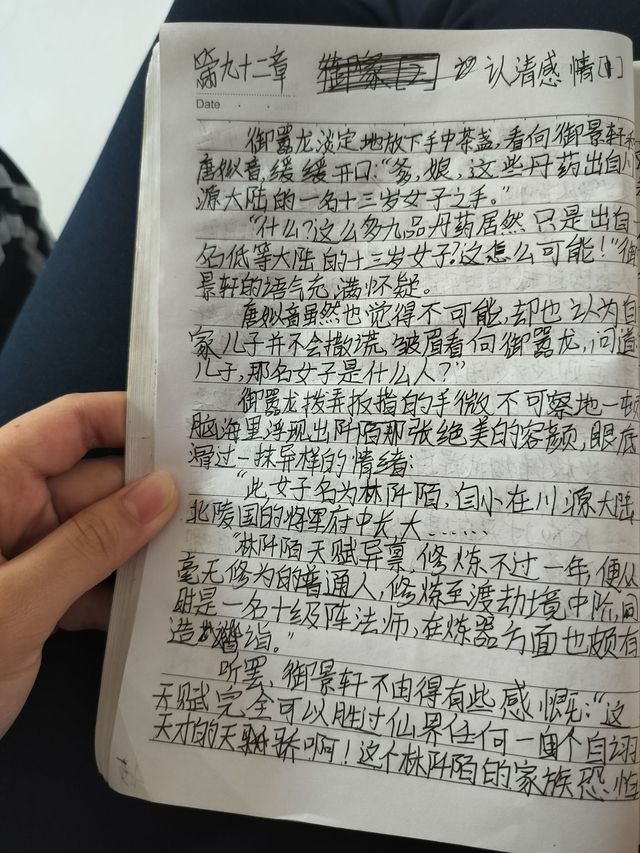 第九十二章 认清感情[1]
Date
御嚣龙淡定地放下手中茶盏，看向御景轩
唐拟音，缓缓开口：“爹，娘，这些丹药出自小
源大陆的一名十三岁女子之手。”
“什么？这么多九品丹药居然只是出自
名低等大陆的十三岁女子？这怎么可能！”御
景轩的语气充满怀疑。
唐拟音虽然也觉得不可能，却也认为自
家儿子并不会撒谎，皱眉看向御嚣龙，问道
儿子，那名女子是什么人？”
御嚣龙拨弄扳指的手微不可察地一顿
脑海里浮现出阡陌那张绝美的容颜，眼底
滑过一抹异样的情绪：
“此女子名为林阡陌，自小在川源大陆
北陵国的将军府中长大……
“林阡陌天赋异禀，修炼不过一年，便从
毫无修为的普通人，修炼至渡劫境中阶，同
时是一名十级阵法师，在炼器方面也颇有
造诣。”
听罢，御景轩不由得有些感慨：“这
天赋完全可以胜过仙界任何一个自诩
天才的天骄啊！这个林阡陌的家族恐怕